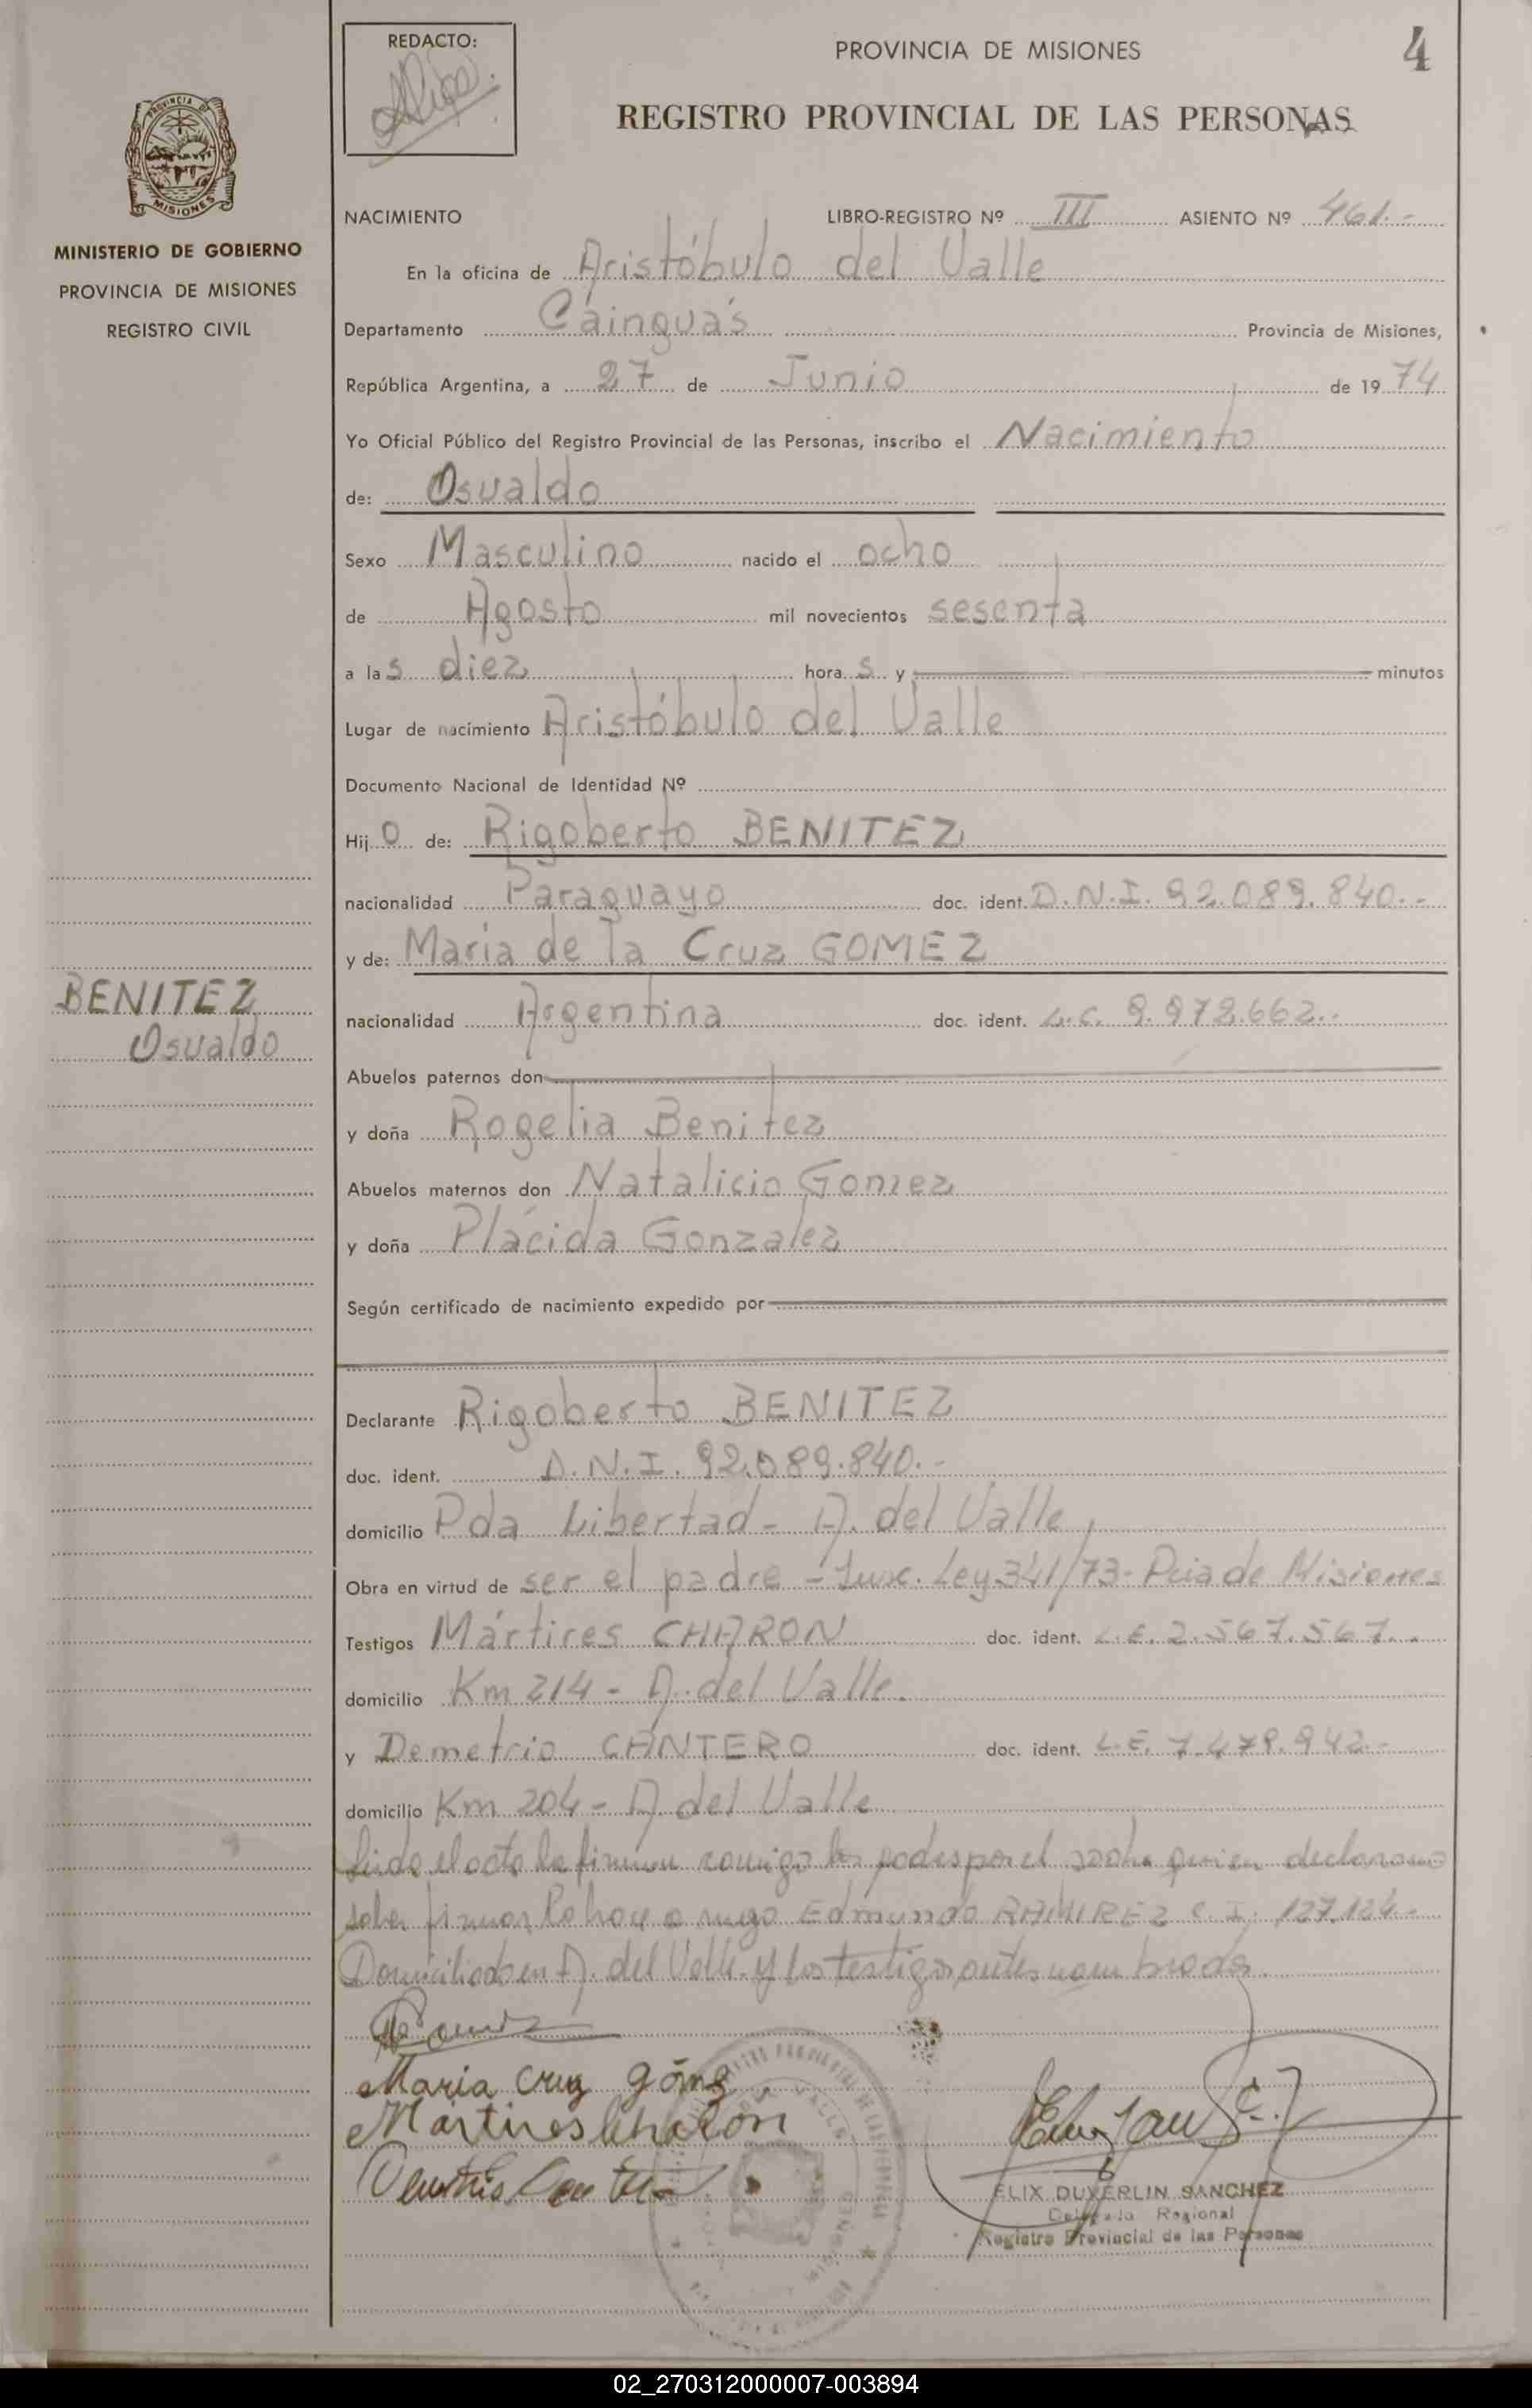 REDACTO:
PROVINCIA DE MISIONES
4
REGISTRO PROVINCIAL DE LAS PERSONAS
PROVINCIA DE
MISIONES
MINISTERIO DE GOBIERNO
PROVINCIA DE MISIONES
REGISTRO CIVIL
NACIMIENTO LIBRO-REGISTRO Nº III ASIENTO Nº 461.-
En la oficina de Aristóbulo del Valle
Departamento Cainguás Provincia de Misiones,
República Argentina, a 27 de Junio de 1974
Yo Oficial Público del Registro Provincial de las Personas, inscribo el Nacimiento
de: Osvaldo
Sexo Masculino nacido el ocho
de Agosto mil novecientos sesenta
a las diez horas y minutos
Lugar de nacimiento Aristóbulo del Valle
Documento Nacional de Identidad Nº
Hijo de: Rigoberto BENITEZ
nacionalidad Paraguayo doc. ident. D.N.I. 92.089.840.-
y de: Maria de la Cruz GOMEZ
BENITEZ
Osvaldo
nacionalidad Argentina doc. ident. L.C.
Abuelos paternos don
y doña Rogelia Benitez
Abuelos maternos don Natalicio Gomez
y doña Plácida Gonzalez
Según certificado de nacimiento expedido por
Declarante Rigoberto BENITEZ
doc. ident. D.N.I. 92.089.840.-
domicilio Pda Libertad - A. del Valle
Obra en virtud de ser el padre - Ley 341/73- Pcia de Misiones
Testigos Mártires CHARON doc. ident. L.E. 2.567.567.-
domicilio Km 214 - A. del Valle.
y Demetrio CANTERO doc. ident. L.E.
domicilio Km 204 - A. del Valle
el acta la firman conmigo los padres por el quien
firmar lo hace a ruego Edmundo RAMIREZ C.I. 127.124.-
en A. del Valle y los testigos antes nombrados
Maria Cruz
Martires Charon
ELIX DUVERLIN SANCHEZ
Delegado Regional
Registro Provincial de las Personas
02_270312000007-003894